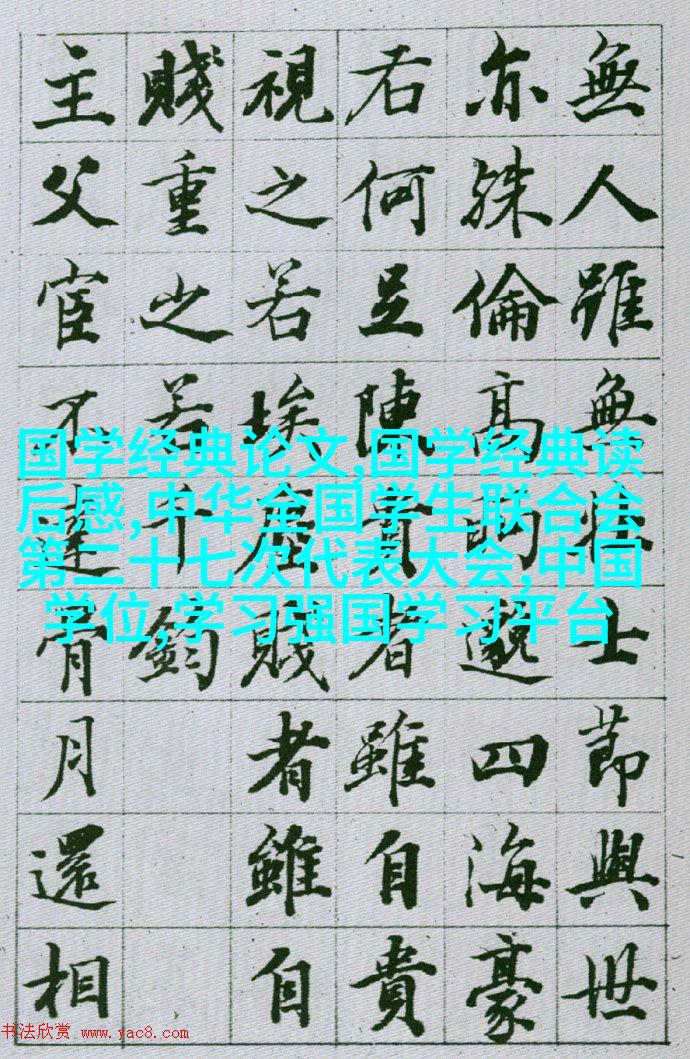 無人雖無壯士節與世
亦殊倫高眄邈四海豪
右何足陳貴者雖自貴
視之若埃塵賤者雖自
賤重之若千鈞
主父宦不達骨月還相
国学经典论文,国学经典读
后感,中华全国学生联合会
第二十七次代表大会,中国
学位,学习强国学习平台
书法欣赏 www.yac8.com